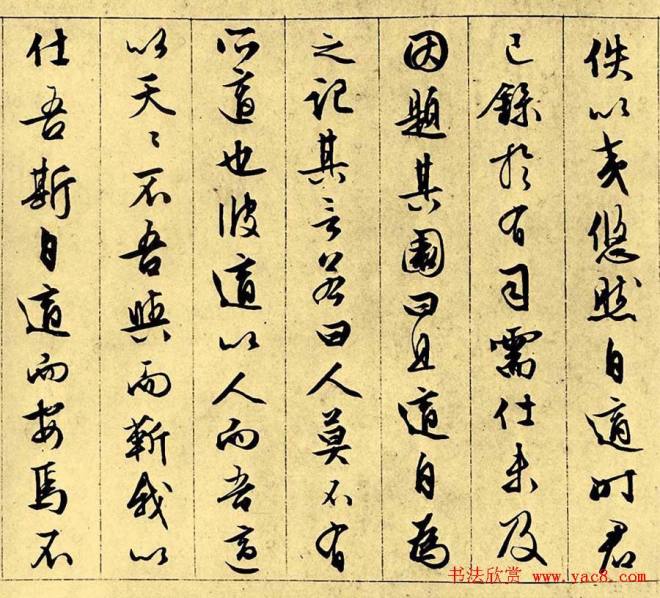 佚以夷悠然自適時君
已錄於有司需仕未及
因題其園曰且適自為
之記其言若曰人莫不有
所適也彼適以人而吾適
以天〻不吾與而靳我以
仕吾斯自適而安焉不
书法欣赏 www.yac8.com